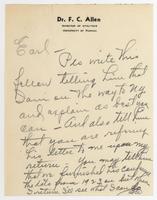 Dr. F. C. Allen
DIRECTOR OF ATHLETICS
UNIVERSITY OF KANSAS
Earl -
Pls write this
fellow telling him that
I am on the way to NY
and explain as best you
can - And also tell him
that you are referring
his letter to me upon my
return - You may tell him
that we furnished his
the data from 1922 on
I return. To see what I can